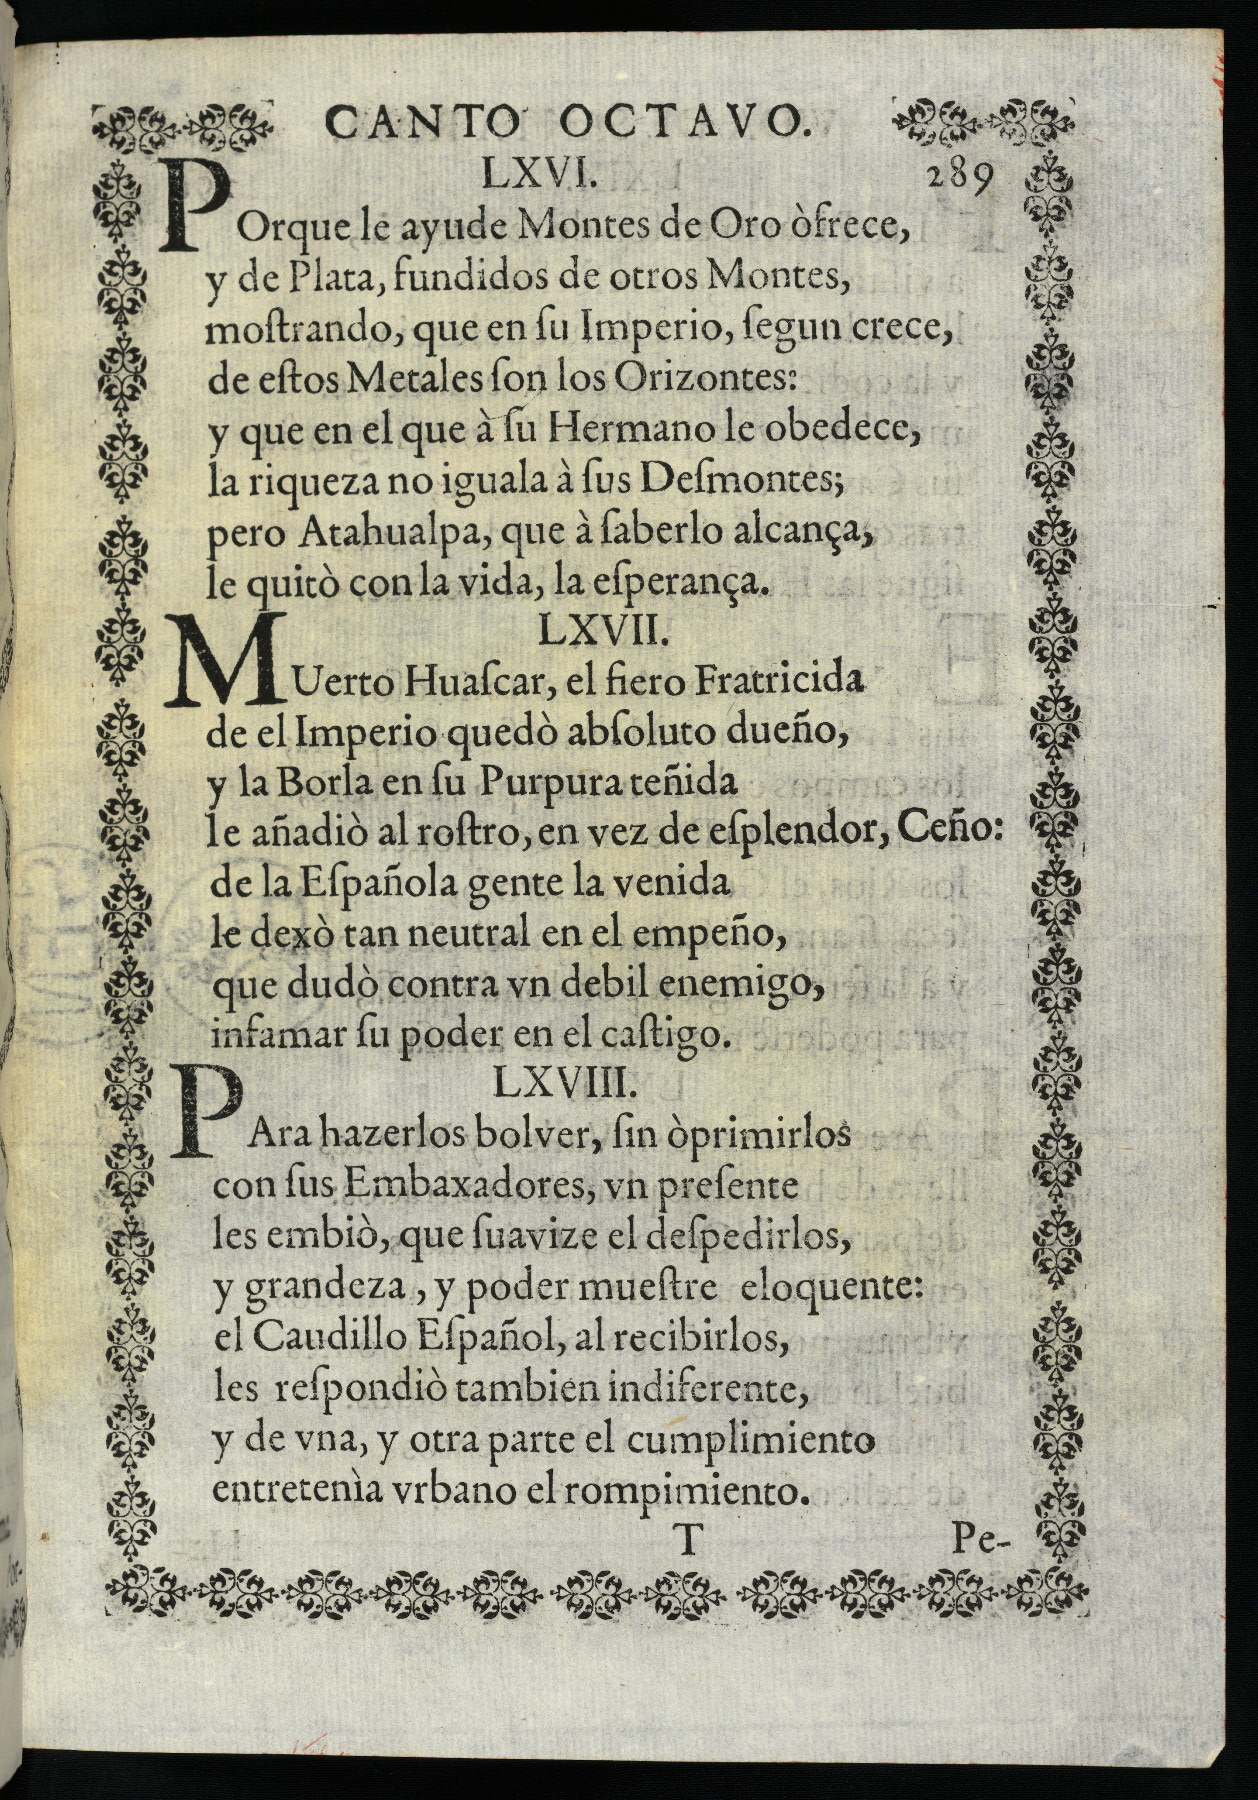 CANTO OCTAVO.
LXVI.
289
POrque le ayude Montes de Oro òfrece,
y de Plata, fundidos de otros Montes,
moſtrando, que en ſu Imperio, ſegun crece,
de eſtos Metales ſon los Orizontes:
y que en el que à ſu Hermano le obedece,
la riqueza no iguala à ſus Deſmontes;
pero Atahualpa, que à ſaberlo alcança,
le quitò con la vida, la eſperança.
LXVII.
MUerto Huaſcar, el fiero Fratricida
de el Imperio quedò abſoluto dueño,
y la Borla en ſu Purpura teñida
le añadiò al roſtro, en vez de eſplendor, Ceño:
de la Eſpañola gente la venida
le dexò tan neutral en el empeño,
que dudò contra vn debil enemigo,
infamar ſu poder en el caſtigo.
LXVIII.
PAra hazerlos bolver, ſin òprimirlos
con ſus Embaxadores, vn preſente
les embiò, que ſuavize el deſpedirlos,
y grandeza, y poder mueſtre eloquente:
el Caudillo Eſpañol, al recibirlos,
les reſpondiò tambien indiferente,
y de vna, y otra parte el cumplimiento
entretenìa vrbano el rompimiento.
T Pe-